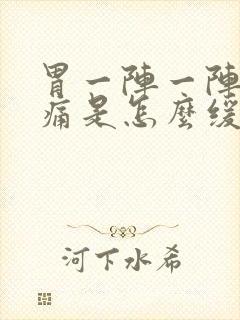 胃一陣一陣
痛是怎麼緩
河下水希